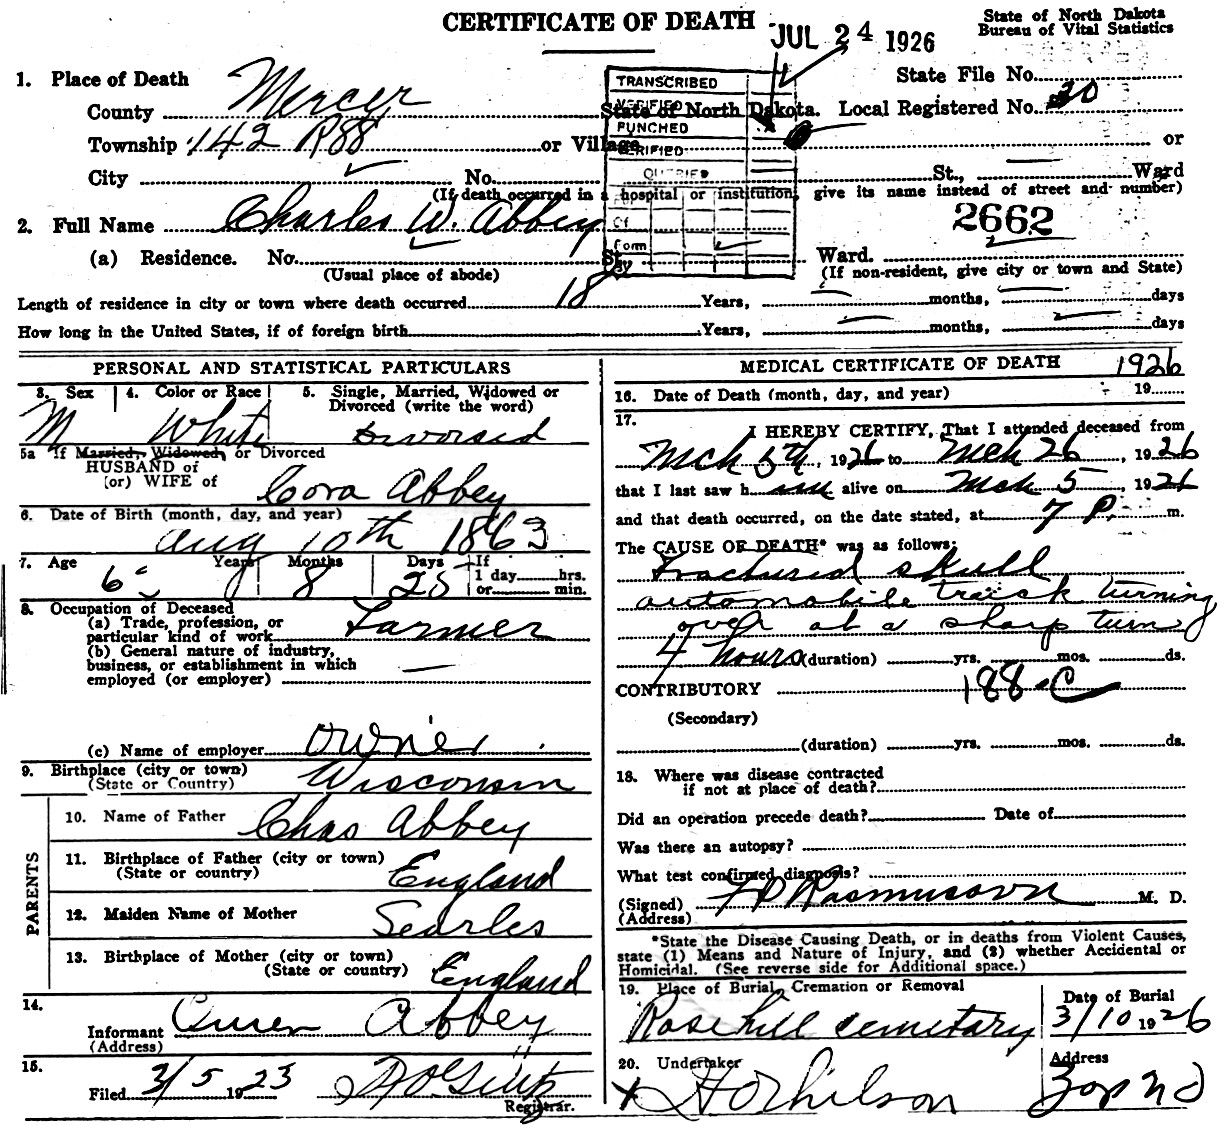 CERTIFICATE OF DEATH
JUL 24 1926
State of North Dakota
Bureau of Vital Statistics
1. Place of Death
State File No.
County Mercer State of North Dakota. Local Registered No. 30
Township 142 R88 or Village or
City No. St., Ward
(If death occurred in a hospital or institution, give its name instead of street and number)
TRANSCRIBED
VERIFIED
PUNCHED
VERIFIED
QUERIED
Of
form
2. Full Name Charles W. Abbey
2662
(a) Residence. No. St. Ward.
(Usual place of abode) (If non-resident, give city or town and State)
Length of residence in city or town where death occurred 18 Years, months, days
How long in the United States, if of foreign birth Years, months, days
PERSONAL AND STATISTICAL PARTICULARS
3. Sex 4. Color or Race 5. Single, Married, Widowed or
Divorced (write the word)
M White Divorsed
5a If Married, Widowed, or Divorced
HUSBAND of
(or) WIFE of Cora Abbey
6. Date of Birth (month, day, and year)
Aug 10th 1863
7. Age Years Months Days If
1 day hrs.
or min.
8 25
8. Occupation of Deceased
(a) Trade, profession, or
particular kind of work Farmer
(b) General nature of industry,
business, or establishment in which
employed (or employer)
(c) Name of employer owner
9. Birthplace (city or town)
(State or Country) Wisconsin
PARENTS
10. Name of Father Chas Abbey
11. Birthplace of Father (city or town)
(State or country) England
12. Maiden Name of Mother Searles
13. Birthplace of Mother (city or town)
(State or country) England
14.
Informant Abbey
(Address)
15.
Filed 3/5 1923
Registrar.
MEDICAL CERTIFICATE OF DEATH 1926
16. Date of Death (month, day, and year) 19
17.
I HEREBY CERTIFY, That I attended deceased from
Mch 5th, 1926 to Mch 26, 1926
that I last saw h im alive on Mch 5 1926
and that death occurred, on the date stated, at 7 P. m.
The CAUSE OF DEATH* was as follows:
Fractured skull
automobile truck turning
over at a sharp turn
4 hours (duration) yrs. mos. ds.
CONTRIBUTORY 188-C
(Secondary)
(duration) yrs. mos. ds.
18. Where was disease contracted
if not at place of death?
Did an operation precede death? Date of
Was there an autopsy?
What test confirmed diagnosis?
(Signed) F P Rasmussen M. D.
(Address)
*State the Disease Causing Death, or in deaths from Violent Causes,
state (1) Means and Nature of Injury, and (2) whether Accidental or
Homicidal. (See reverse side for Additional space.)
19. Place of Burial, Cremation or Removal Date of Burial
Rosehill cemetary 3/10 1926
20. Undertaker Address
Zap ND